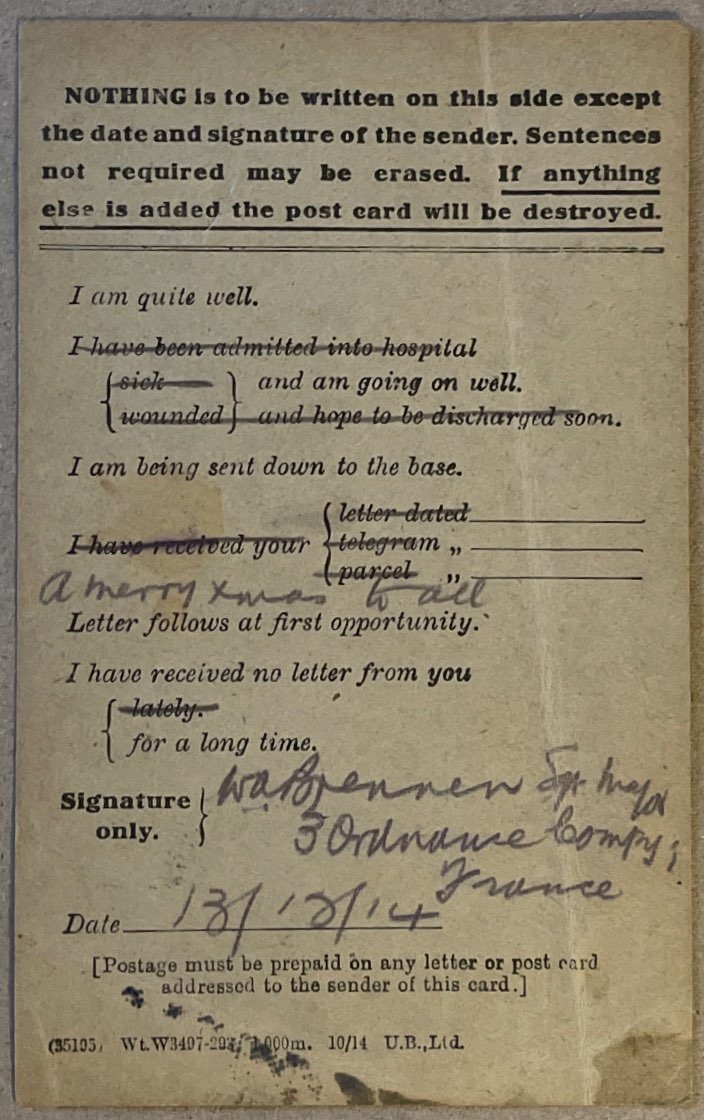 NOTHING is to be written on this side except
the date and signature of the sender. Sentences
not required may be erased. If anything
else is added the post card will be destroyed.
I am quite well.
I have been admitted into hospital
sick and am going on well.
wounded and hope to be discharged soon.
I am being sent down to the base.
letter dated
I have received your telegram „
parcel „
A merry xmas to all
Letter follows at first opportunity.
I have received no letter from you
lately.
for a long time.
Signature only. Wa. Brennen Sgt Major
3 Ordnance Compy,
France
Date 13/12/14
[Postage must be prepaid on any letter or post card
addressed to the sender of this card.]
(35105) Wt.W3497-293 1,000m. 10/14 U.B.,Ltd.